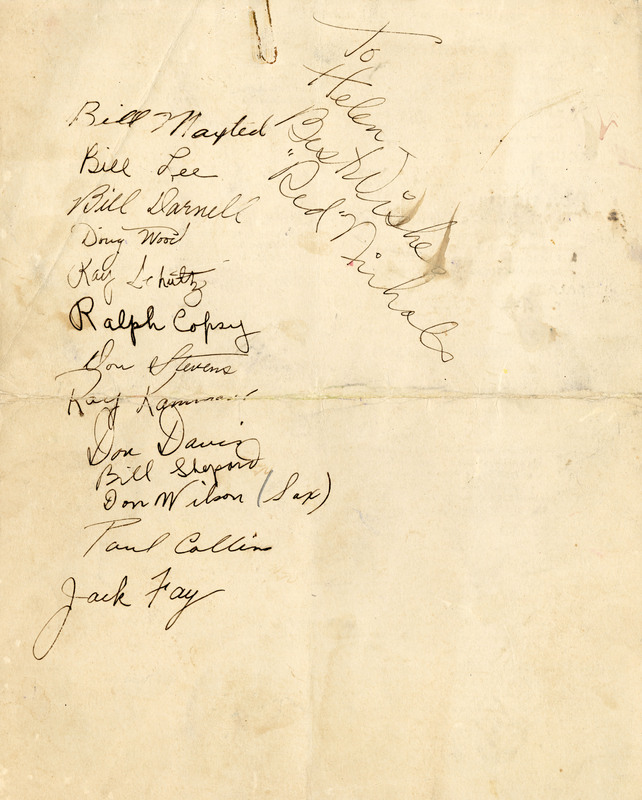 To
Helen
Best Wishes
"Red" Nichols
Bill Maxted
Bill Lee
Bill Darnell
Doug Wood
Ray Schultz
Ralph Copsy
Don Stevens
Ray
Don Davis
Bill Shepard
Don Wilson (Sax)
Paul Collins
Jack Fay